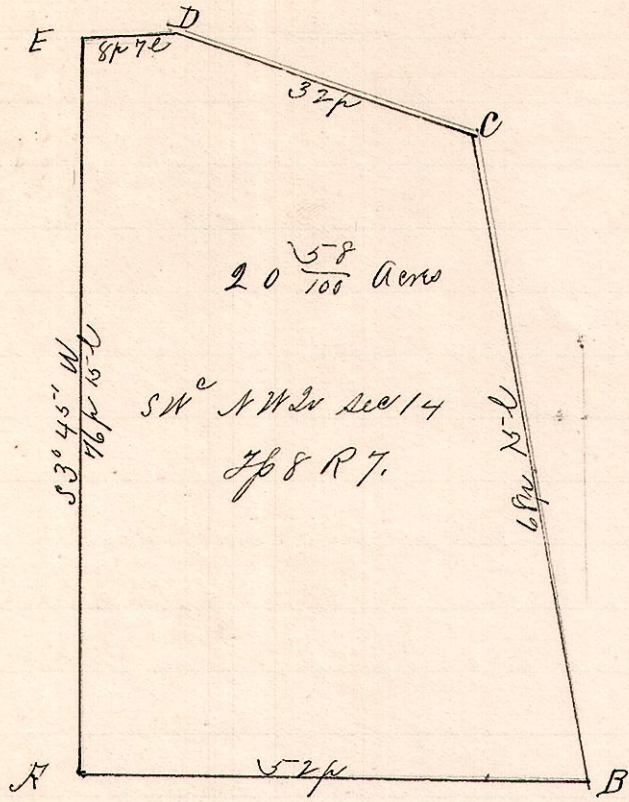 D
E
8p 7l
32p
C
20 58/100 Acres
S 3° 45' W
76p 15l
SWc NW Qr Sec 14
Tp 8 R 7.
68p 15l
A
52p
B